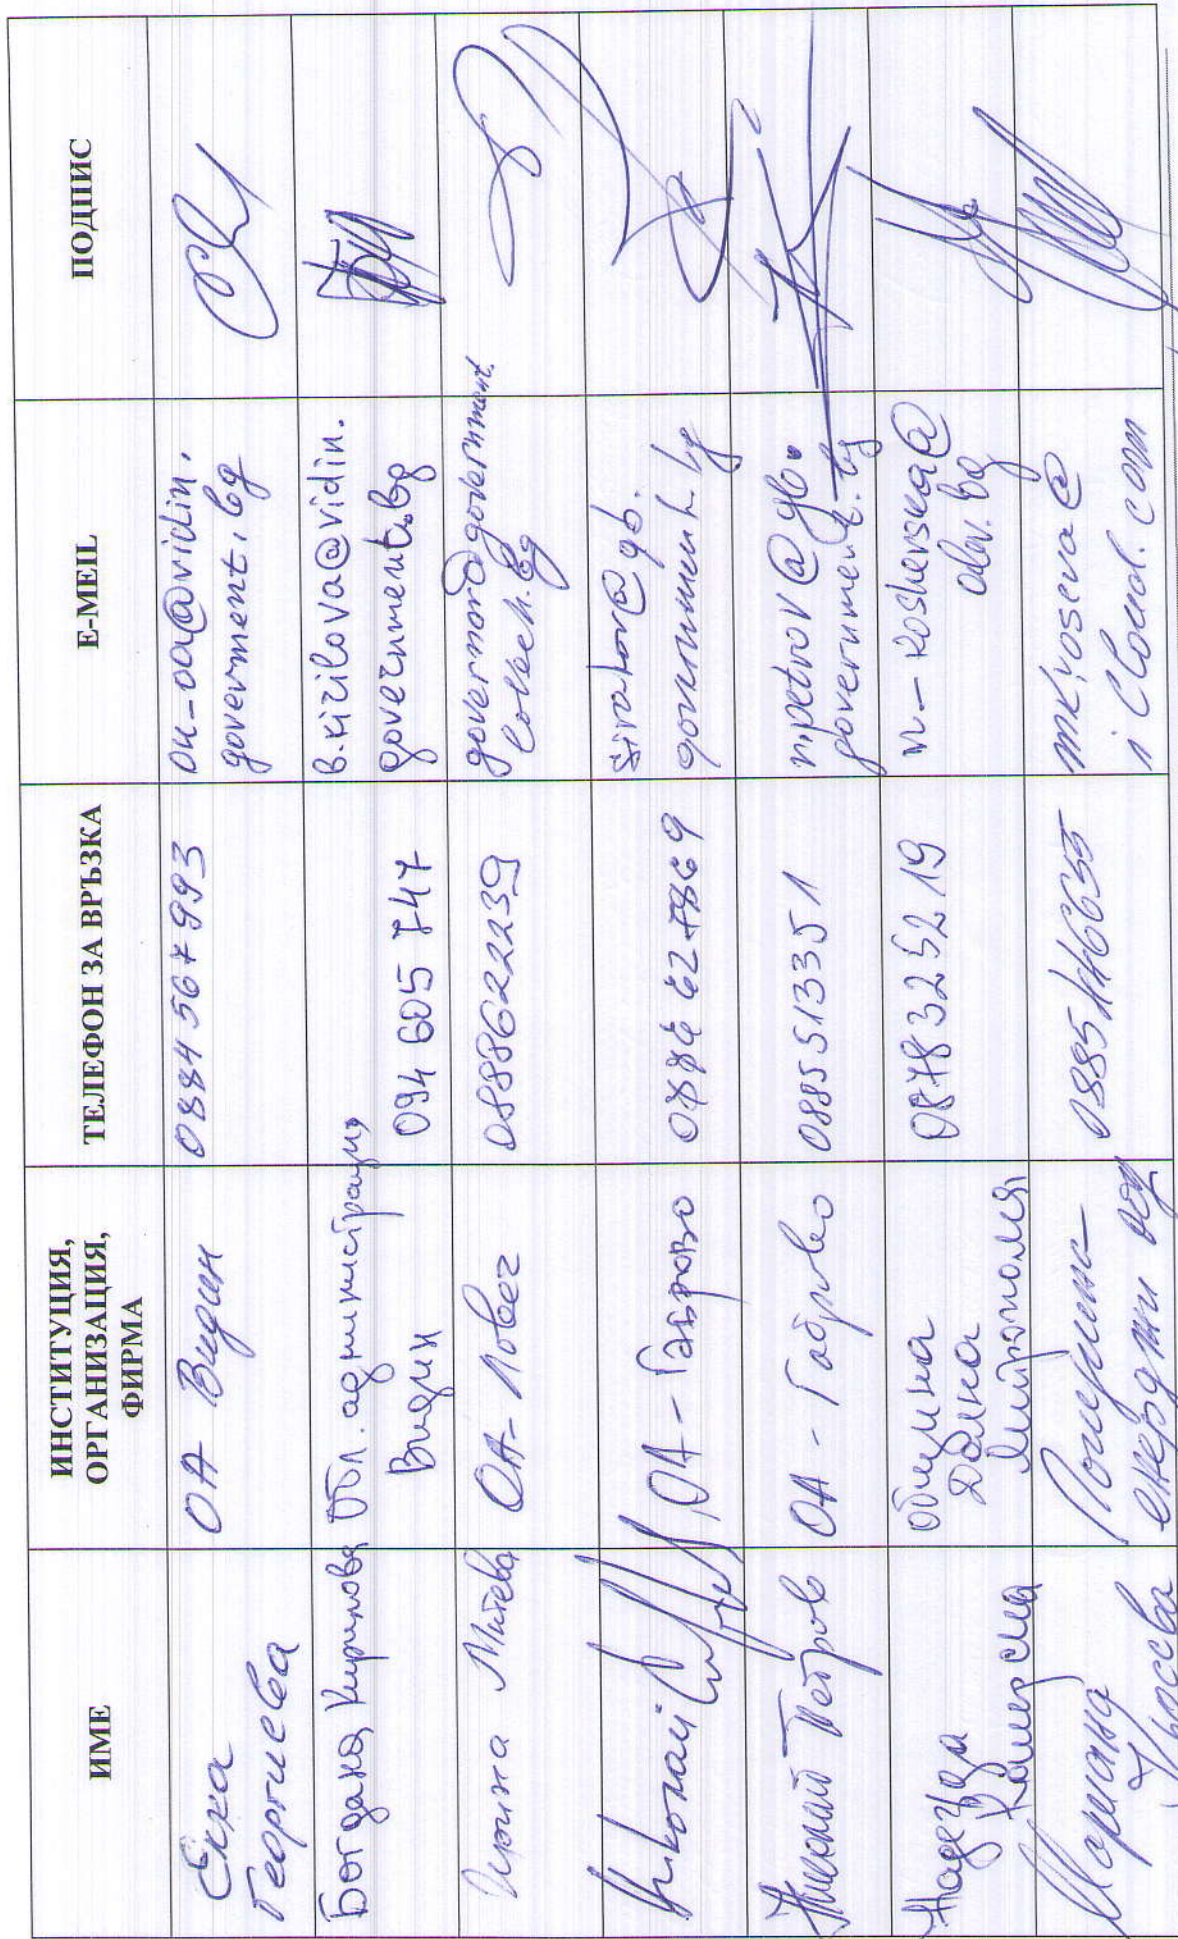 ИМЕ
ИНСТИТУЦИЯ,
ОРГАНИЗАЦИЯ,
ФИРМА
ТЕЛЕФОН ЗА ВРЪЗКА
E-MEIL
ПОДПИС
Елка
Георгиева
ОА Видин
0884567993
ou-oa@vidin.
goverment.bg
Богдана Кирилова
Обл. администрация
Видин
094 605 747
b.kirilova@vidin.
government.bg
Ирина Митева
ОА-Ловеч
0888622239
governor@government.
lovech.bg
Николай
ОА-Габрово
government.bg
Николай Петров
ОА - Габрово
0885513351
n.petrov@gb.
government.bg
Надежда
Община
Долна
Митрополия
0878325219
n-koshevska@
abv.bg
Мариана
Йосева
енерджи оод
mkyoseva@
icloud.com